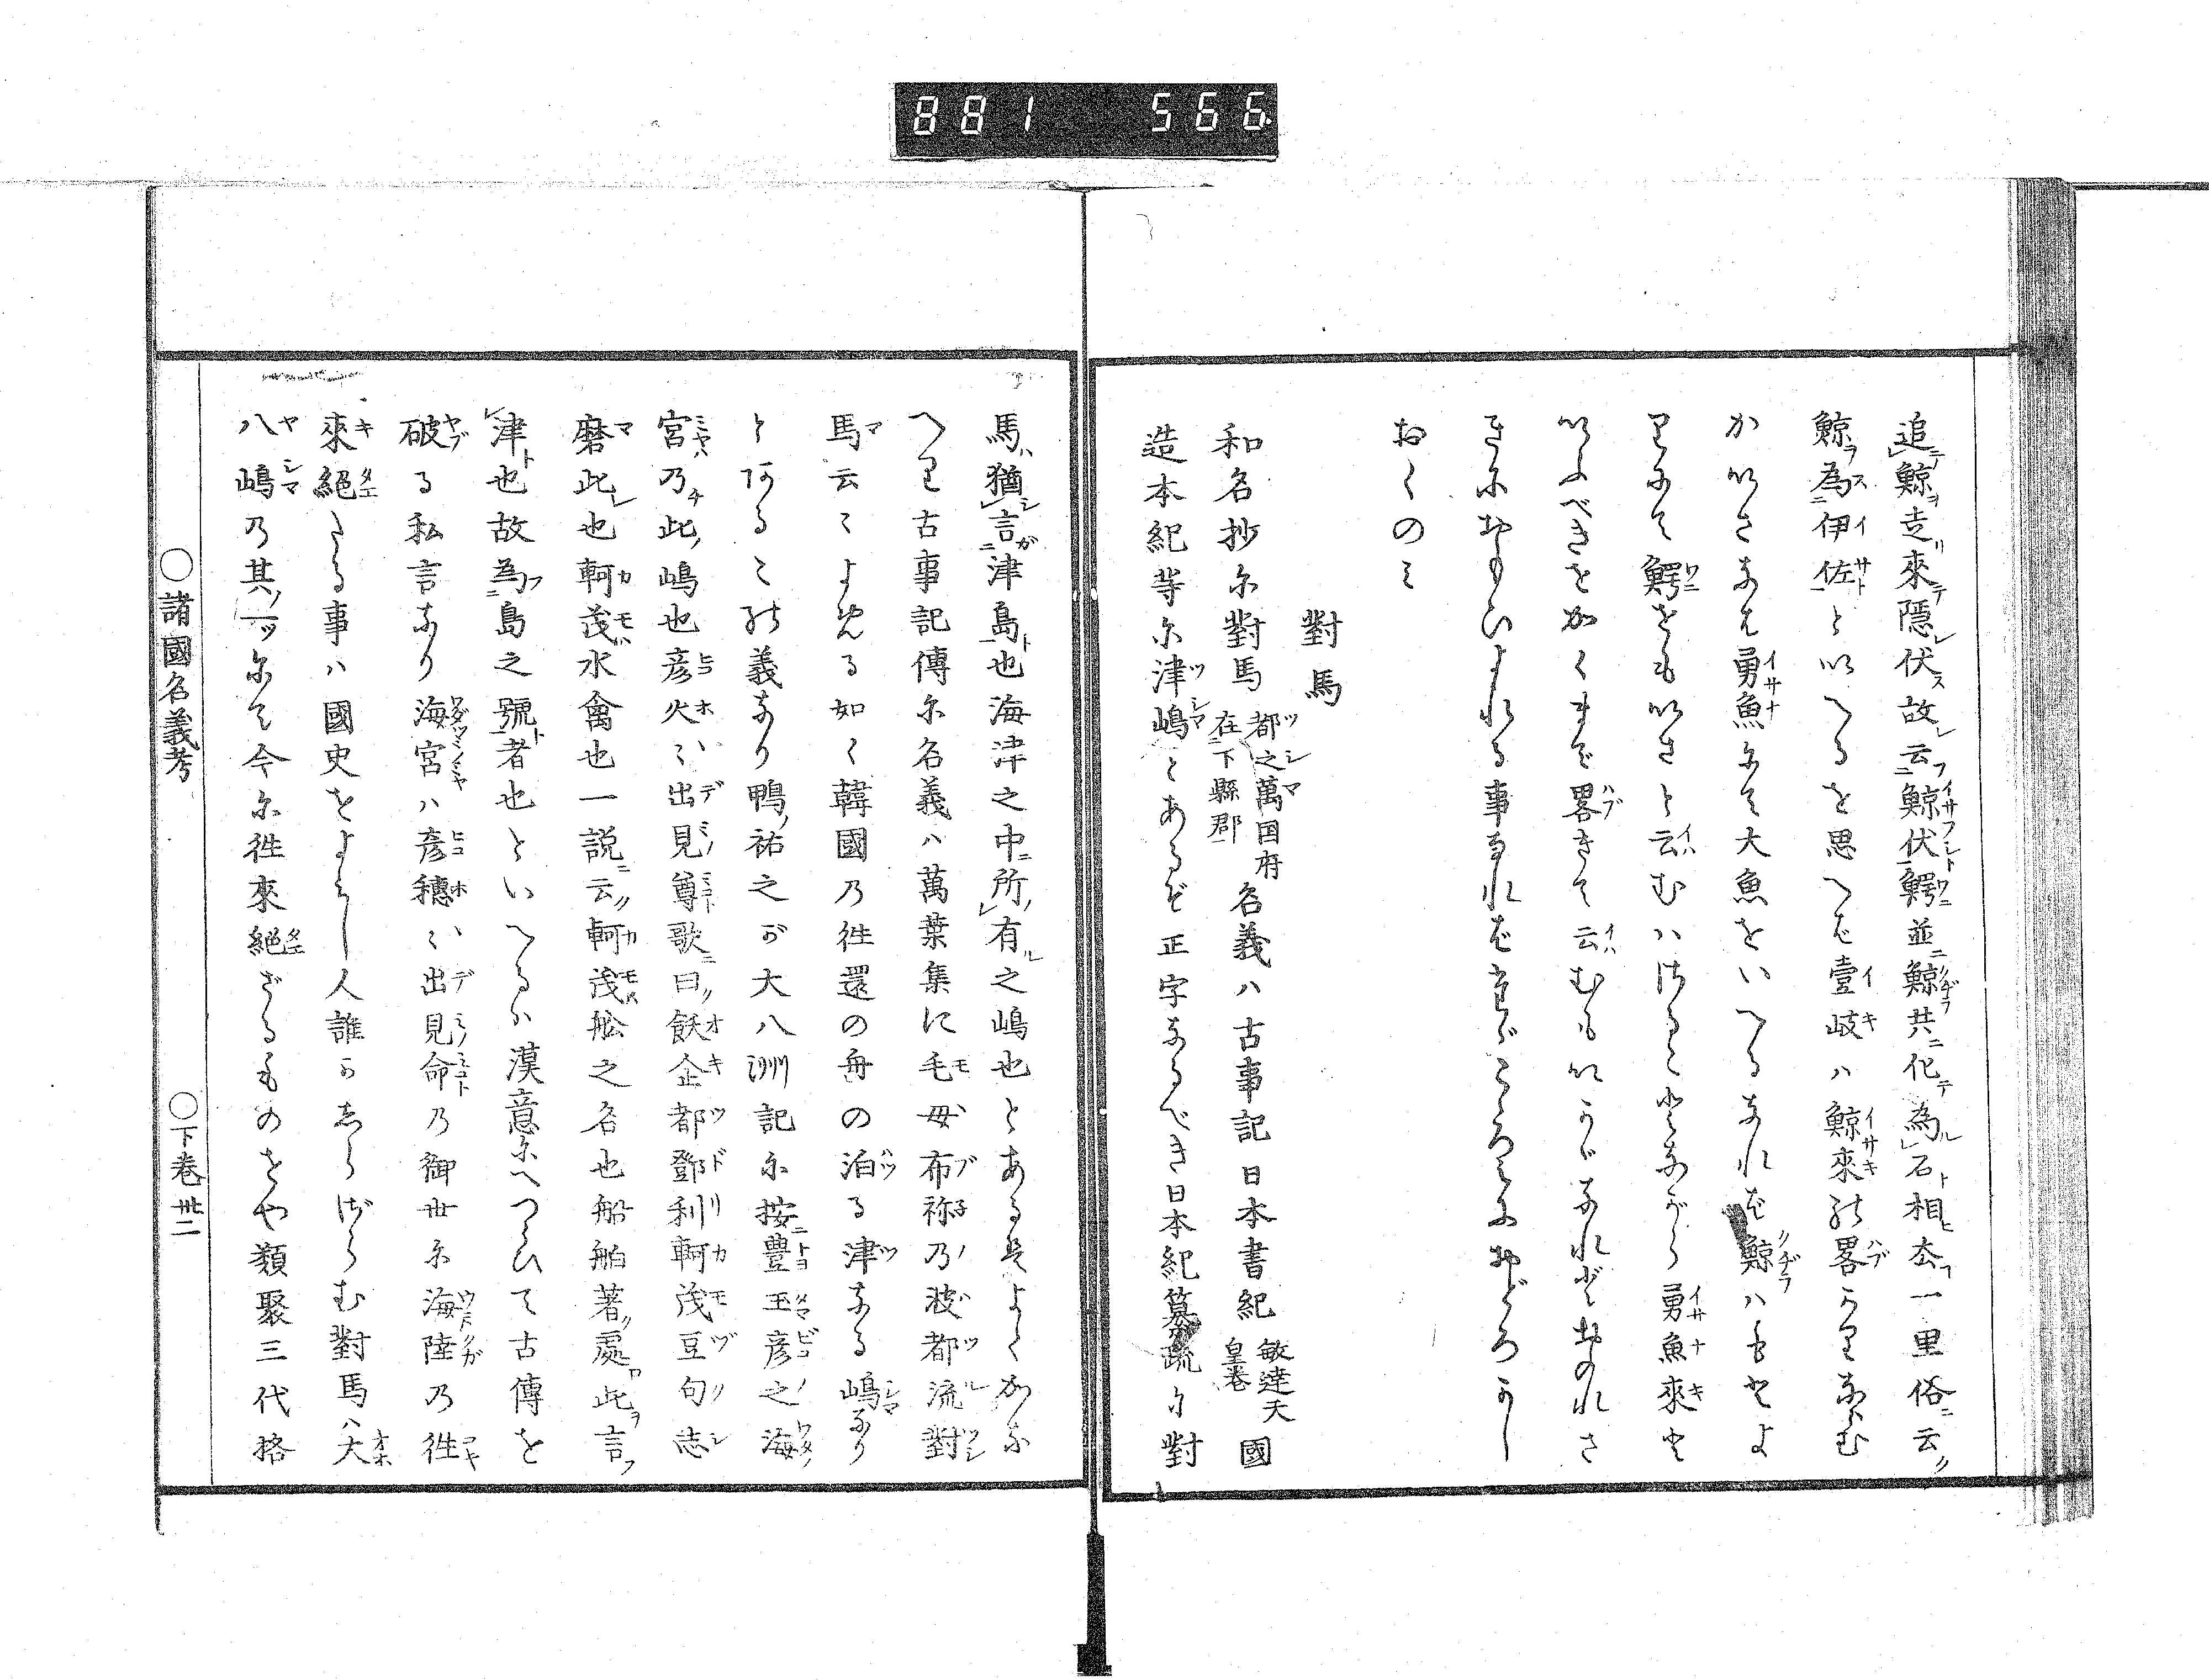 881 566
追鯨走來隱伏故云鯨伏鰐並鯨共化為石相去一里俗云
鯨為伊佐といへるを思へば壹岐ハ鯨來の畧なりなむ
かいさなも勇魚にて大魚をいへるなれば鯨ハもとよ
りにて鰐をもいさと云むハさることながら勇魚來と
いふべきをかくまで畧きて云むもいかゞなれどおのれさ
きにおもひよれる事なればこゝろみにおどろかし
おくのミ
對馬
和名抄尓對馬 都之萬国府在下縣郡 名義ハ古事記日本書紀 敏達天皇卷 國
造本紀等尓津嶋とあるぞ正字なるべき日本紀纂疏尓對
馬猶言津島也海津之中所有之嶋也とあるはよくかな
へり古事記傳尓名義ハ萬葉集に毛母布祢乃波都流對
馬云々よめる如く韓國乃往還の舟の泊る津なる嶋なり
とあるこの義なり鴨祐之が大八洲記尓按豐玉彦之海
宮乃此嶋也彦火々出見尊歌曰飫企都鄧利軻茂豆句志
磨此也軻茂水禽也一説云軻茂舩之名也船舶著處此言
津也故為島之號者也といへるハ漢意尓へつらひて古傳を
破る私言なり海宮ハ彦穗々出見命乃御世尓海陸乃往
來絕たる事ハ國史をよまし人誰かしらざらむ對馬ハ大
八嶋乃其一ッ尓て今尓往來絕ざるものをや類聚三代格
○諸國名義考 ○下卷 卅二